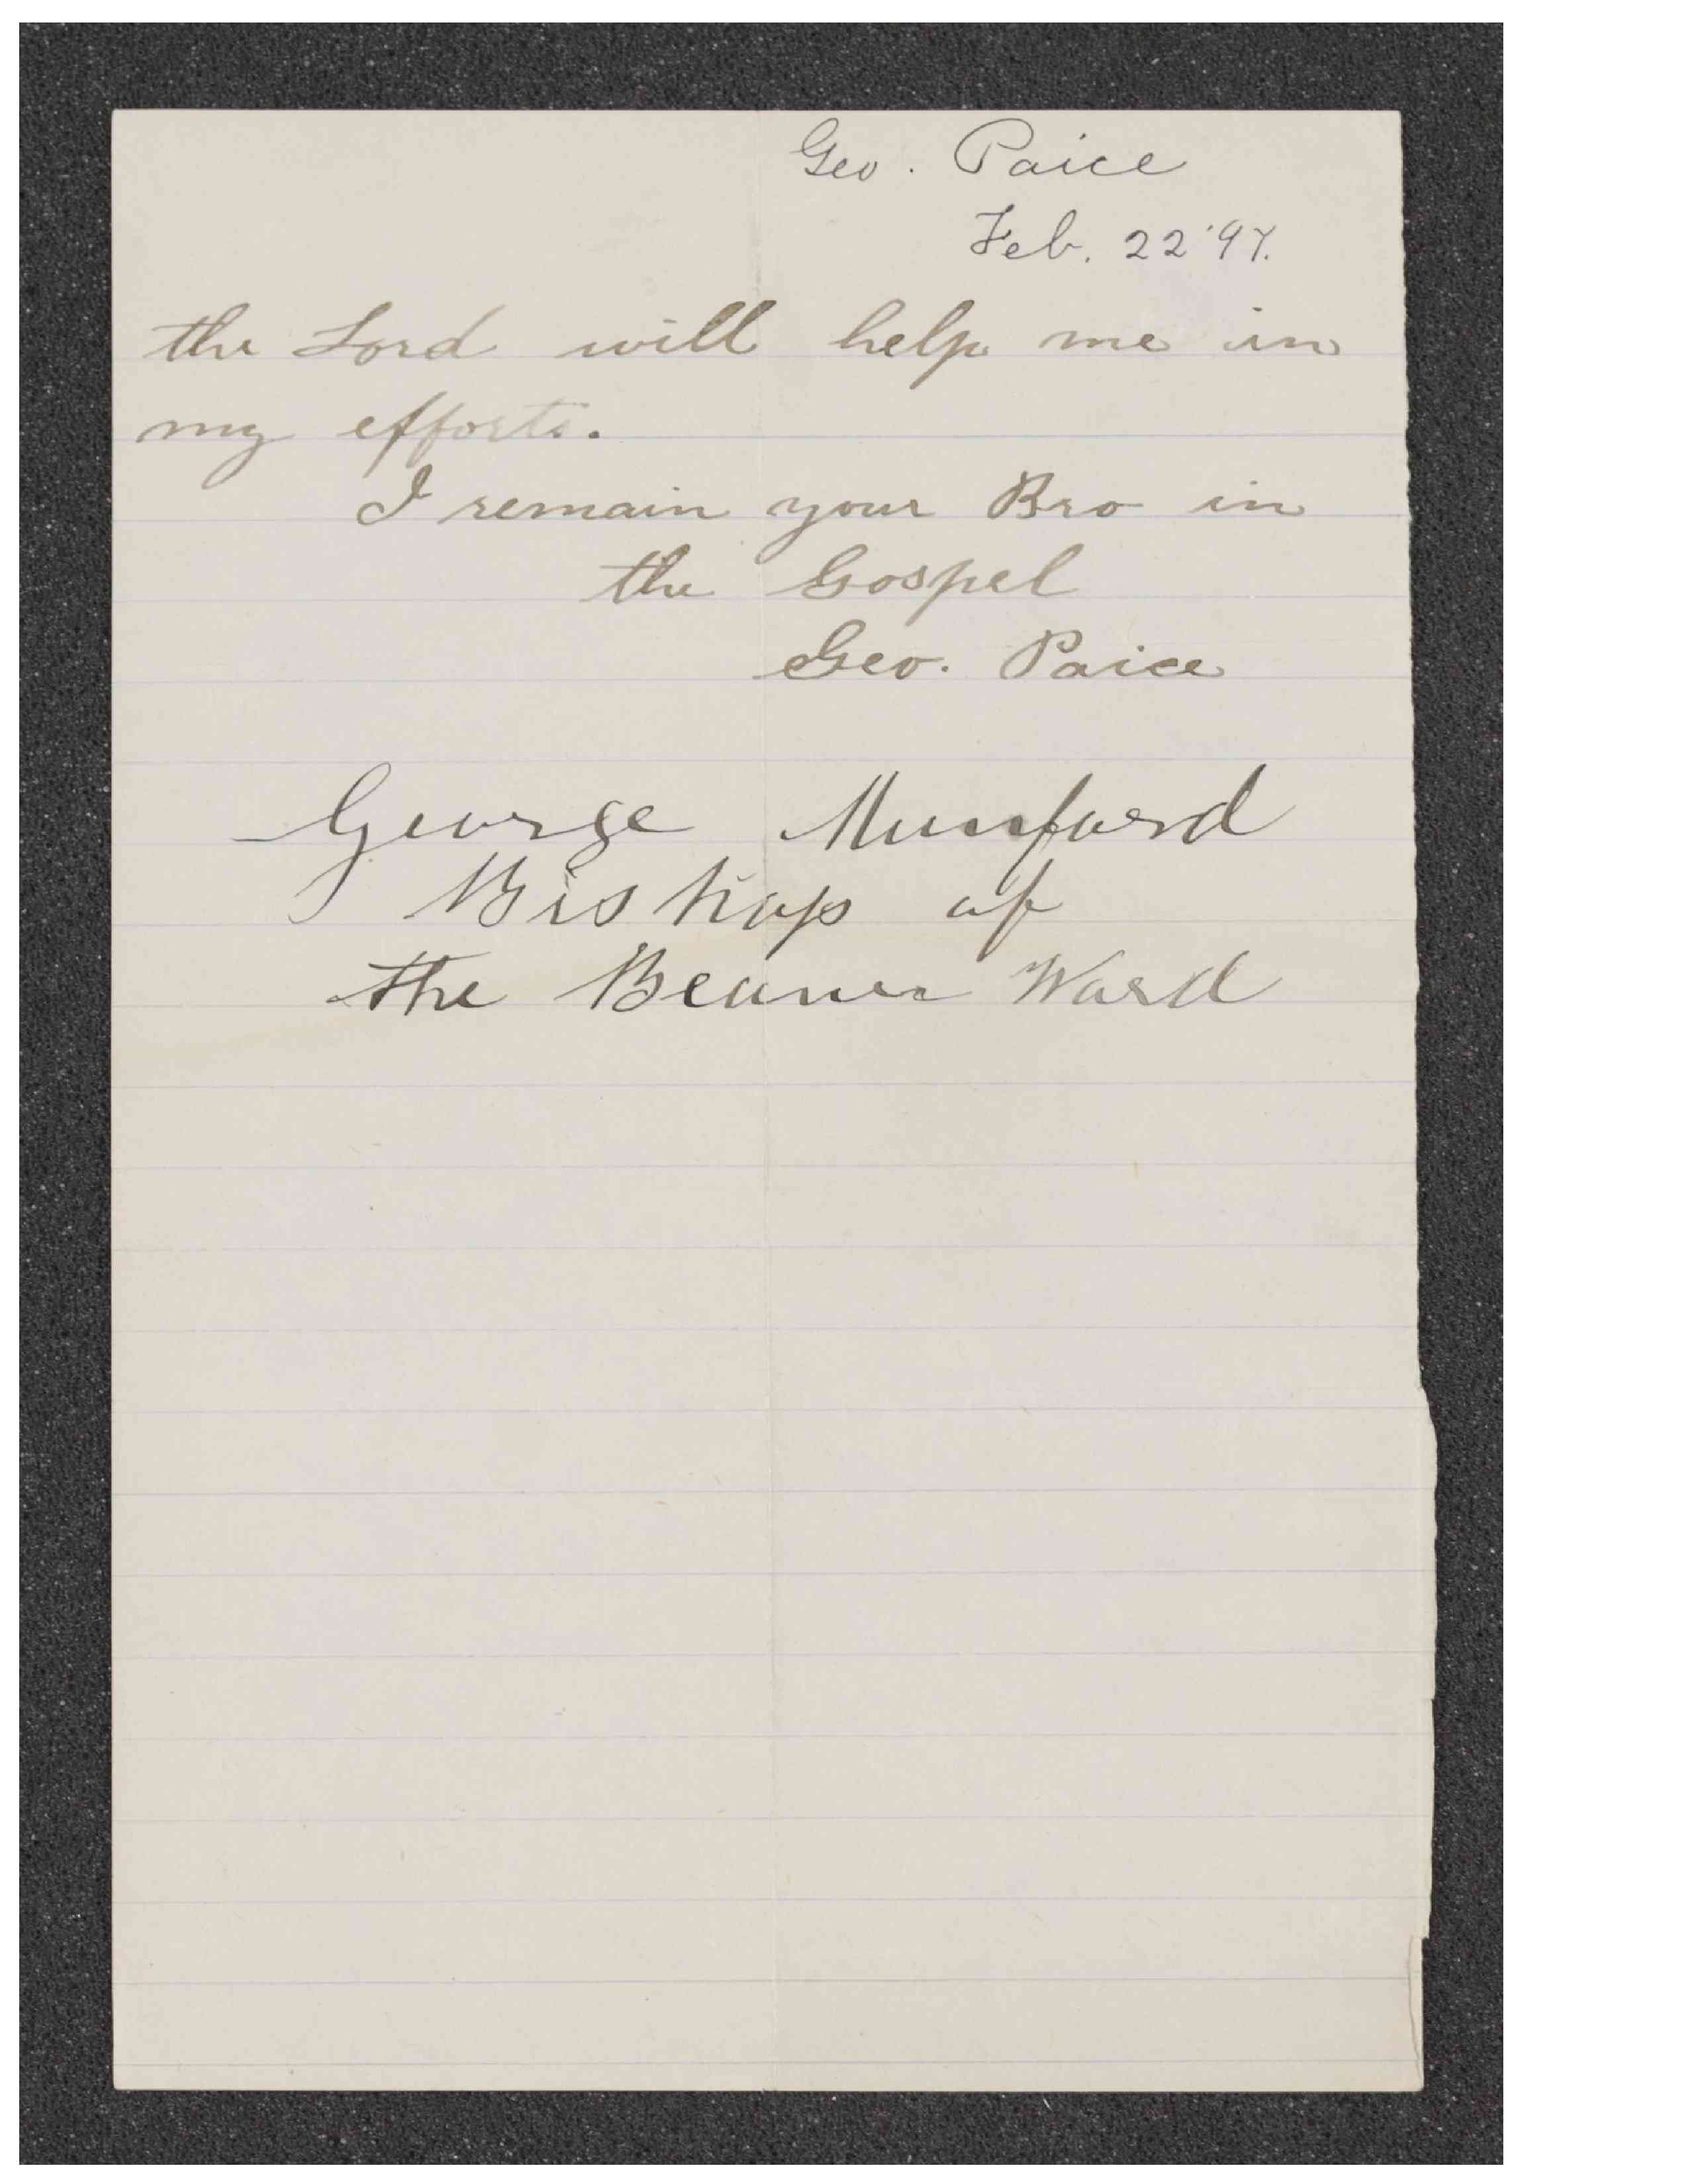 Geo. Paice
Feb. 22 '97.
the Lord will help me in
my efforts.
I remain your Bro in
the Gospel
Geo. Paice
George Munford
Bishop of
the Beaver Ward